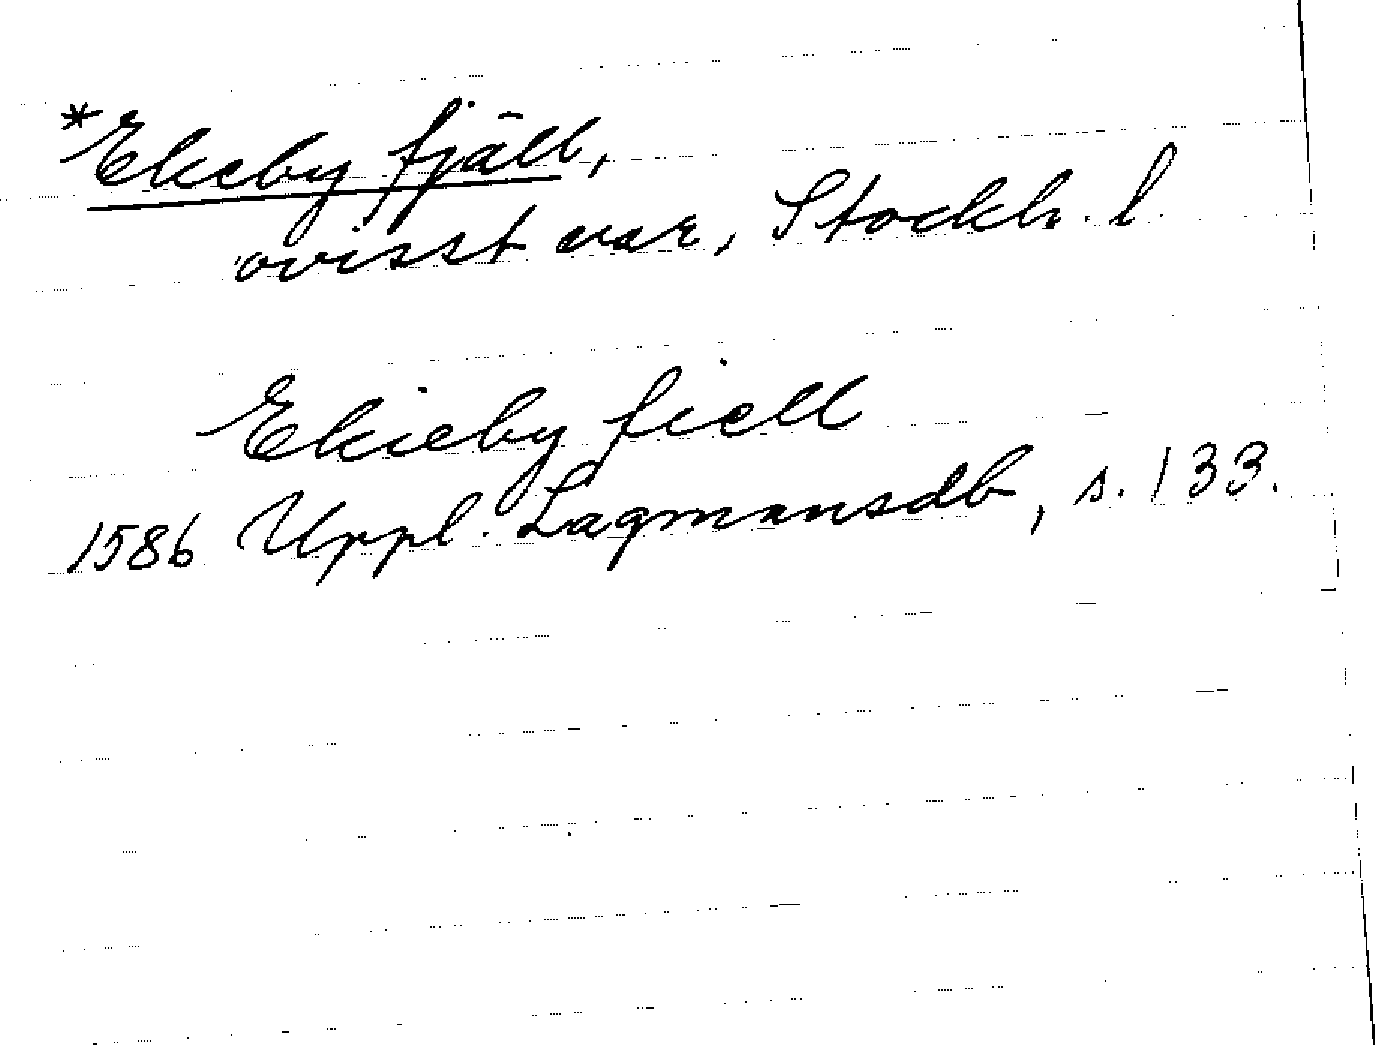 *Ekeby fjäll,
ovisst var, Stockh. l.
Ekieby fiell
1586 Uppl. Lagmansdb, s. 133.